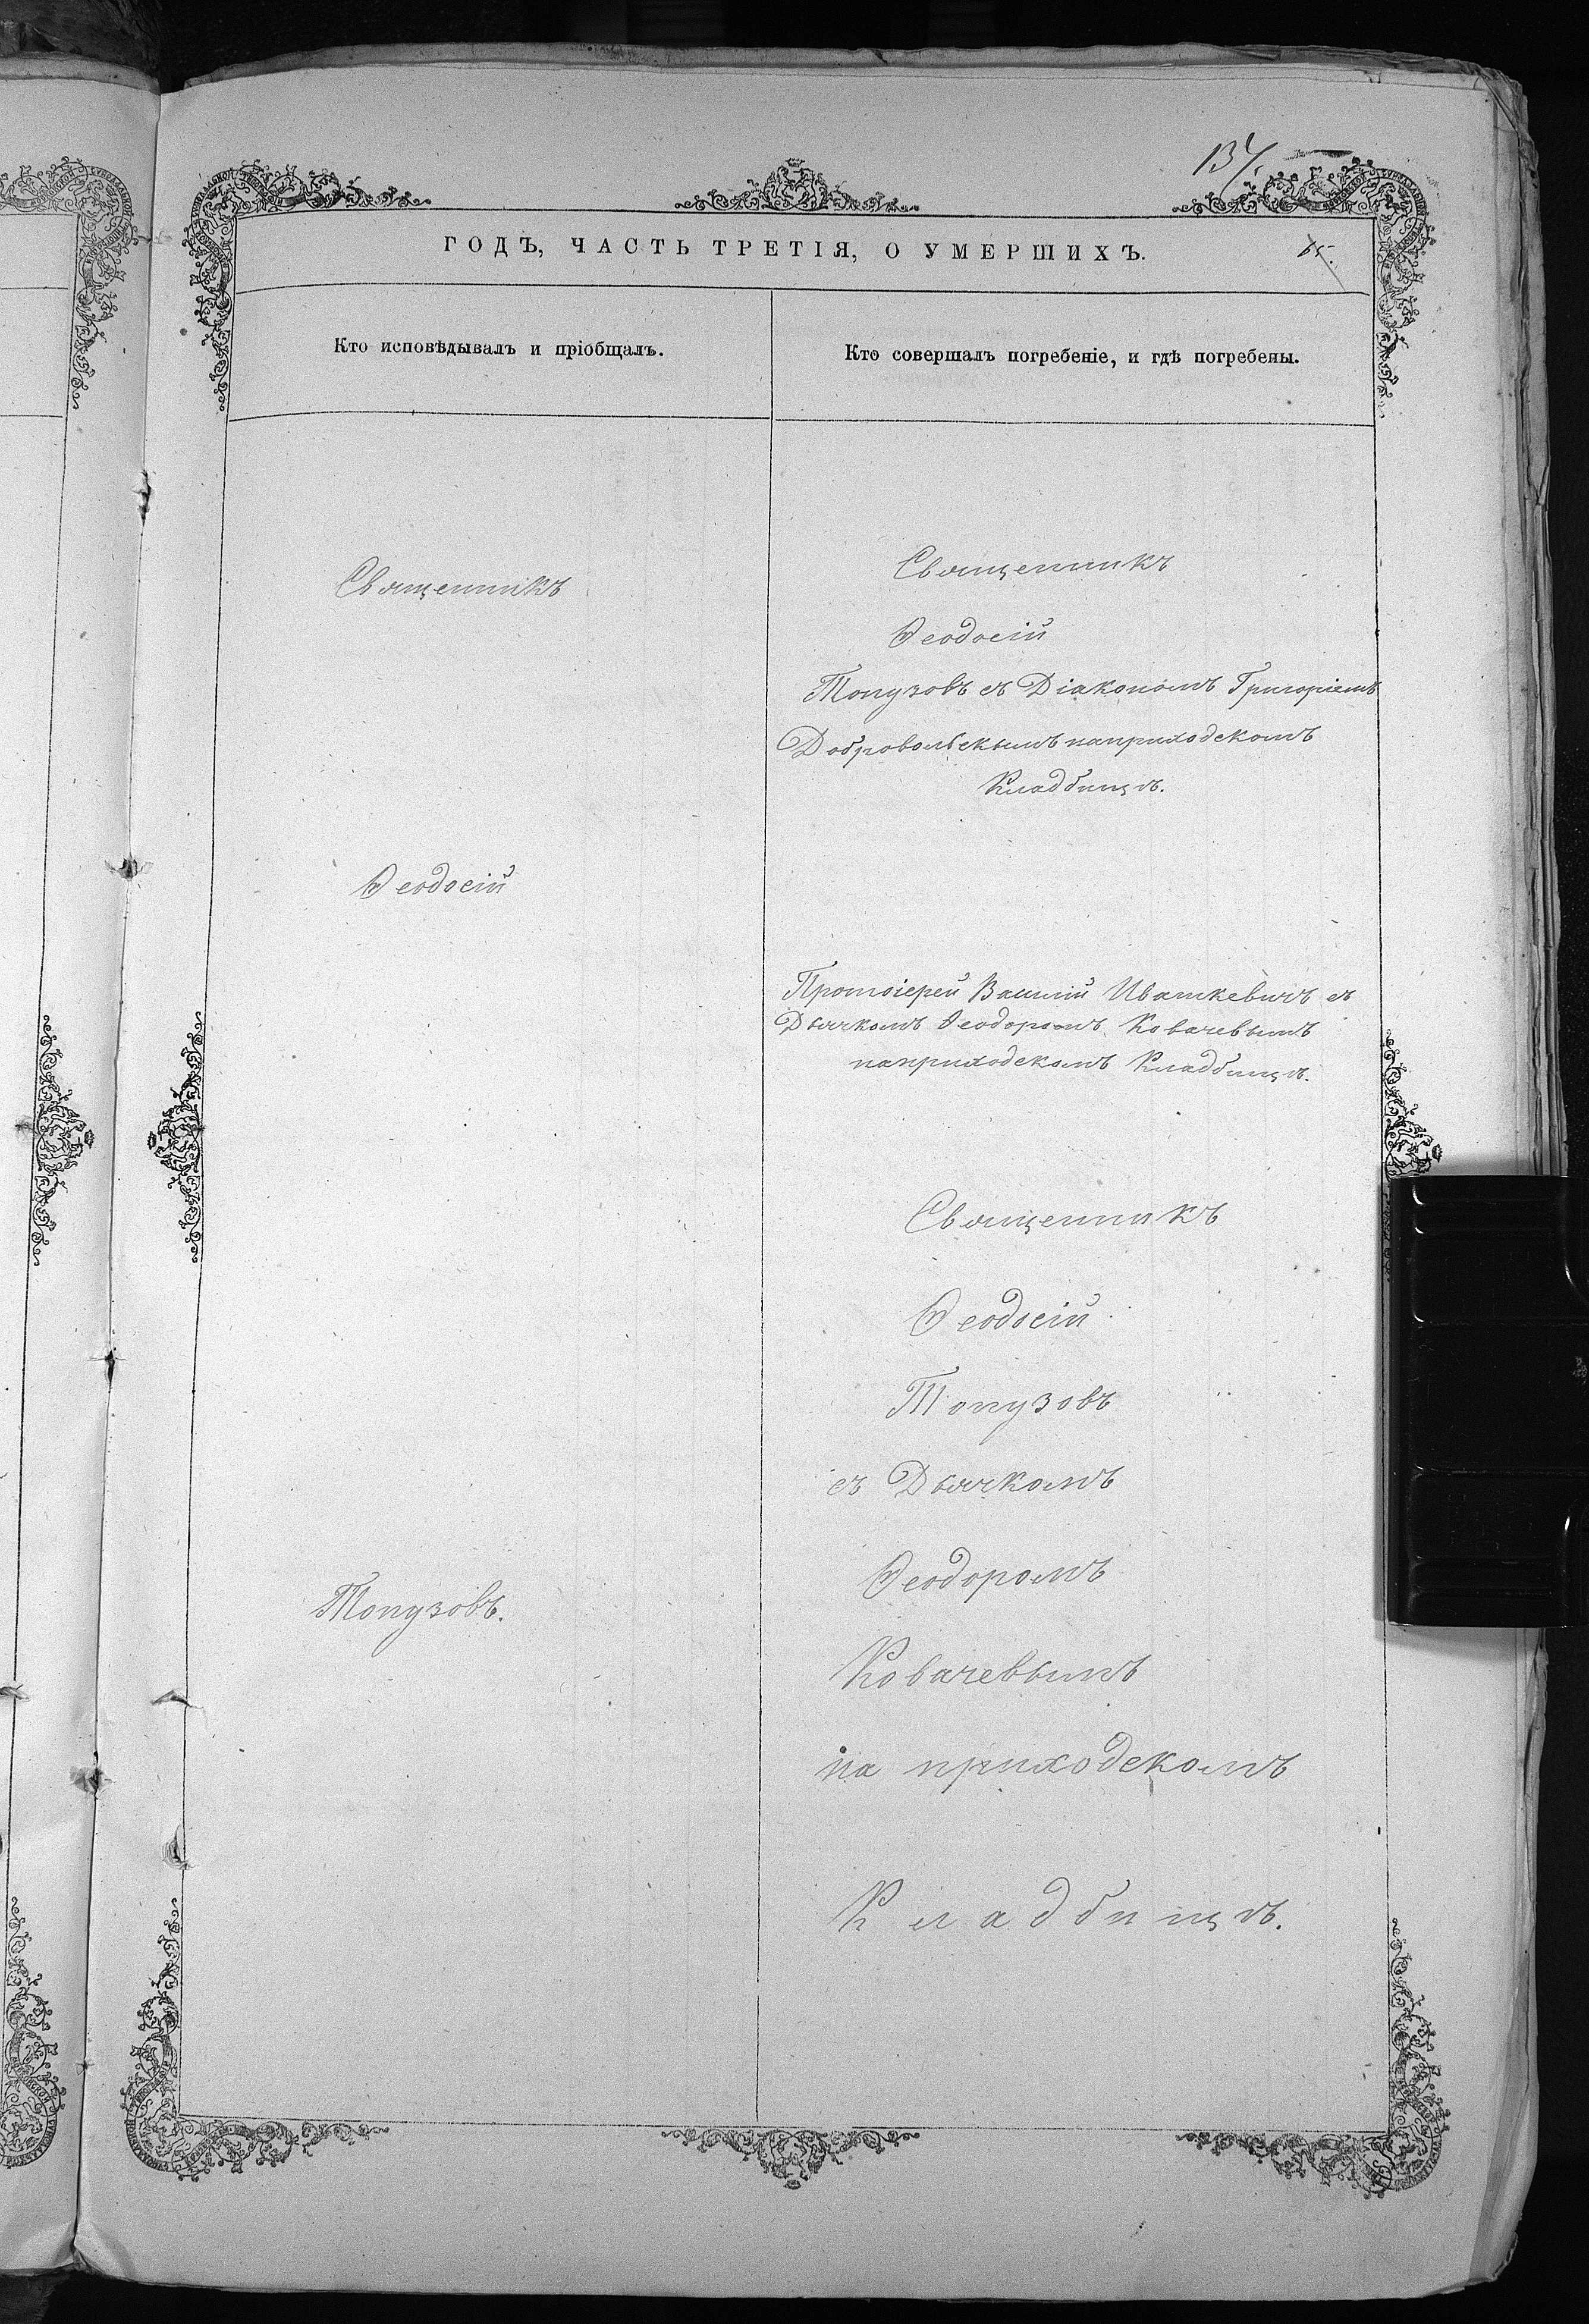 137.
ГОДЪ, ЧАСТЬ ТРЕТІЯ, О УМЕРШИХЪ.
65.
Кто исповѣдывалъ и пріобщалъ.
Кто совершалъ погребеніе, и гдѣ погребены.
Священникъ
Ѳеодосій
Топузовъ.
Священникъ
Ѳеодосій
Топузовъ съ Діакономъ Григоріемъ
Добровольскимъ на приходскомъ
Кладбищѣ.
Протоіерей Василій Ивашкевичъ съ
Дьячкомъ Ѳеодоромъ Ковачевымъ
на приходскомъ Кладбищѣ.
Священникъ
Ѳеодосій
Топузовъ
съ Дьячкомъ
Ѳеодоромъ
Ковачевымъ
на приходскомъ
Кладбищѣ.